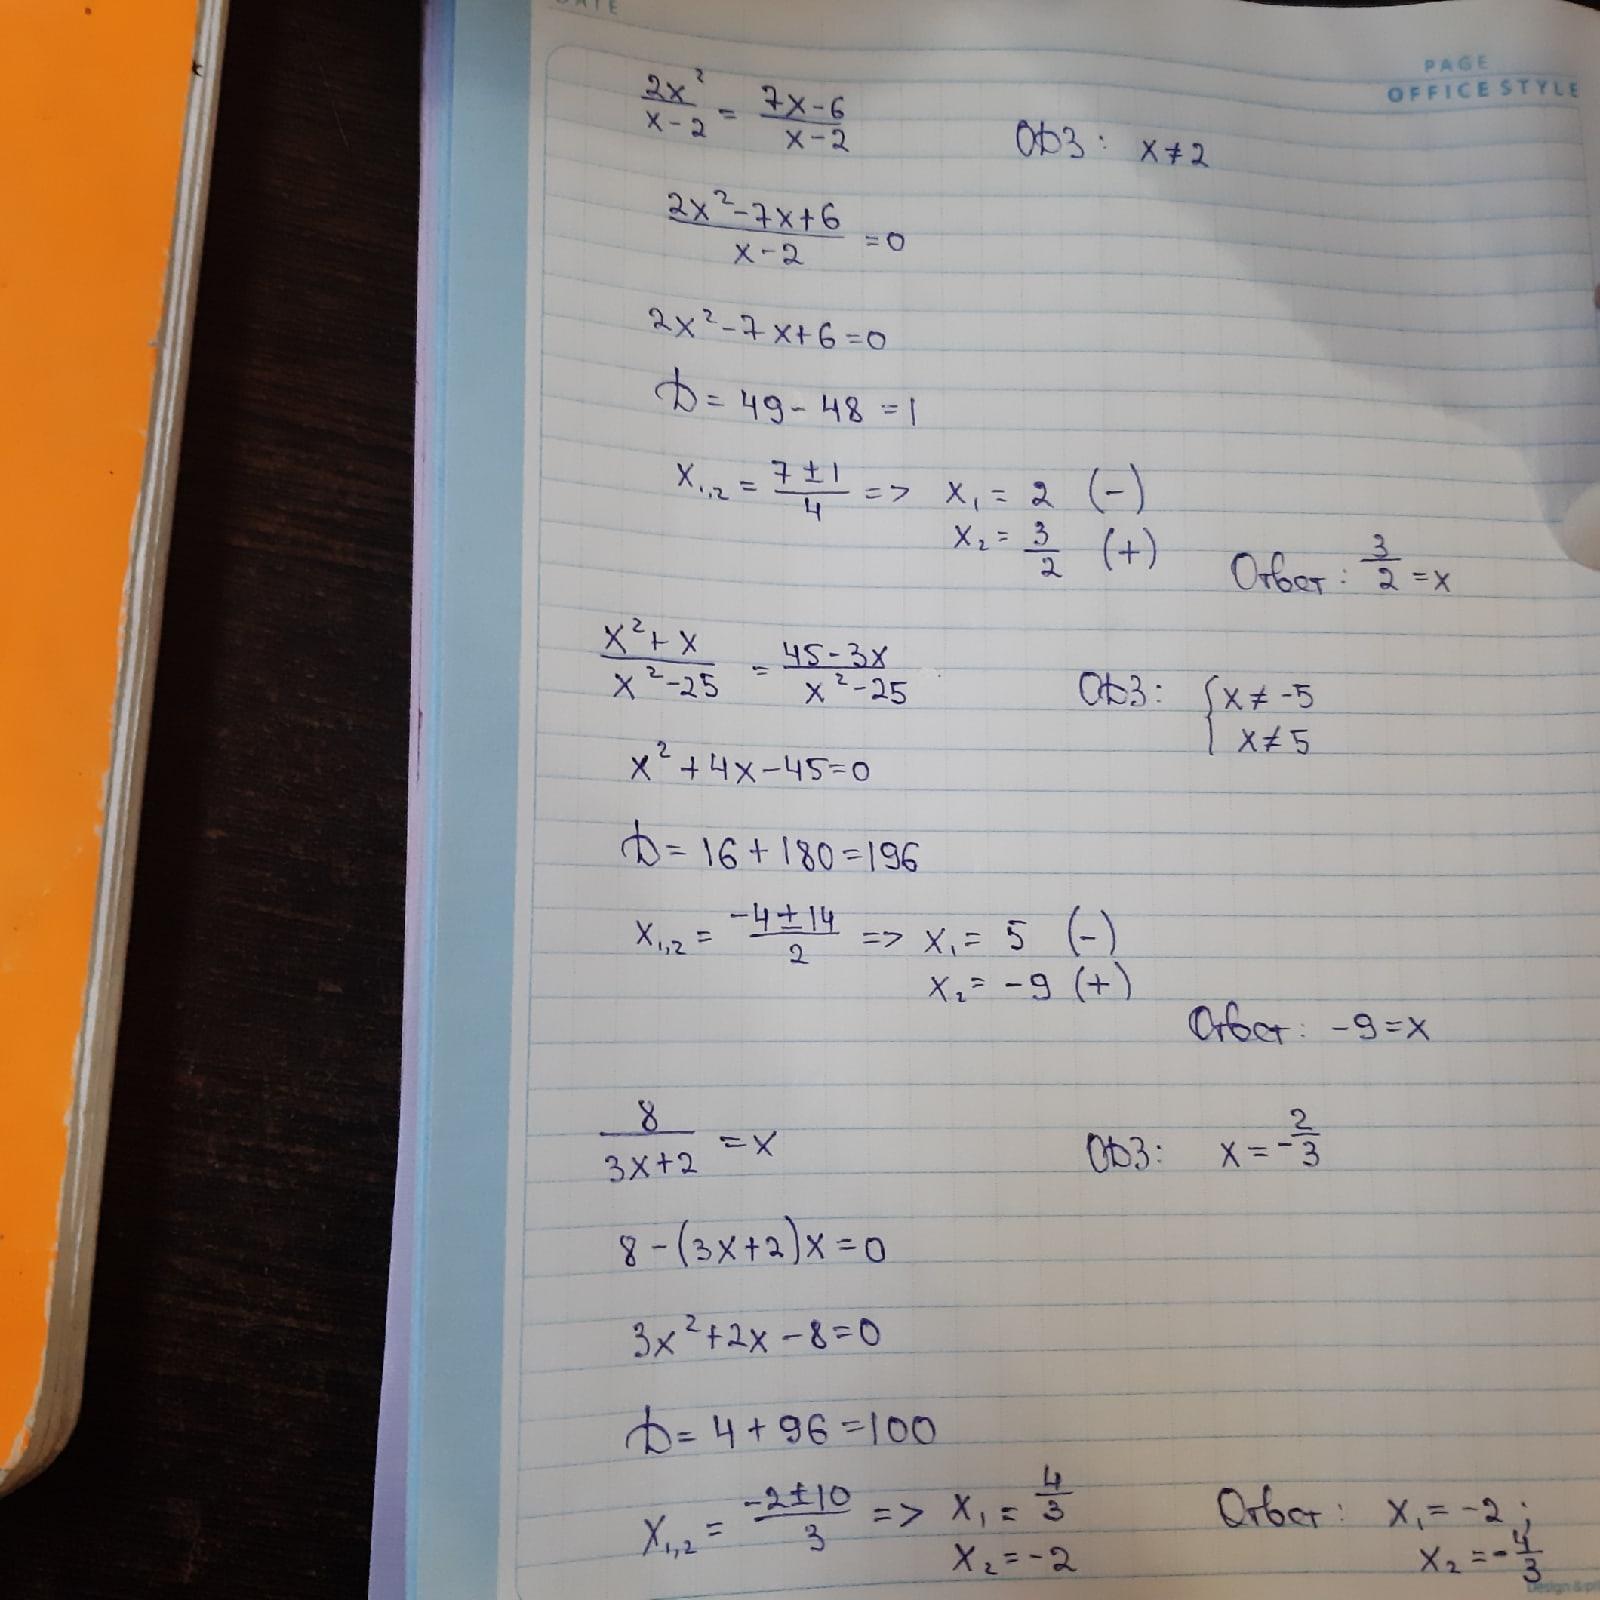 DATE
PAGE
OFFICE STYLE
2x²/(x-2) = (7x-6)/(x-2) ОДЗ: x≠2
(2x²-7x+6)/(x-2) =0
2x²-7x+6=0
D=49-48=1
x₁,₂ = (7±1)/4 => x₁ = 2 (-)
x₂ = 3/2 (+)
Ответ: 3/2 =x
(x²+x)/(x²-25) = (45-3x)/(x²-25) ОДЗ: { x≠-5
x≠5
x²+4x-45=0
D=16+180=196
x₁,₂ = (-4±14)/2 => x₁= 5 (-)
x₂= -9 (+)
Ответ: -9=x
8/(3x+2) =x ОДЗ: x=-2/3
8-(3x+2)x=0
3x²+2x-8=0
D=4+96=100
x₁,₂ = (-2±10)/3 => x₁ = 4/3
x₂=-2
Ответ: x₁=-2;
x₂=-4/3